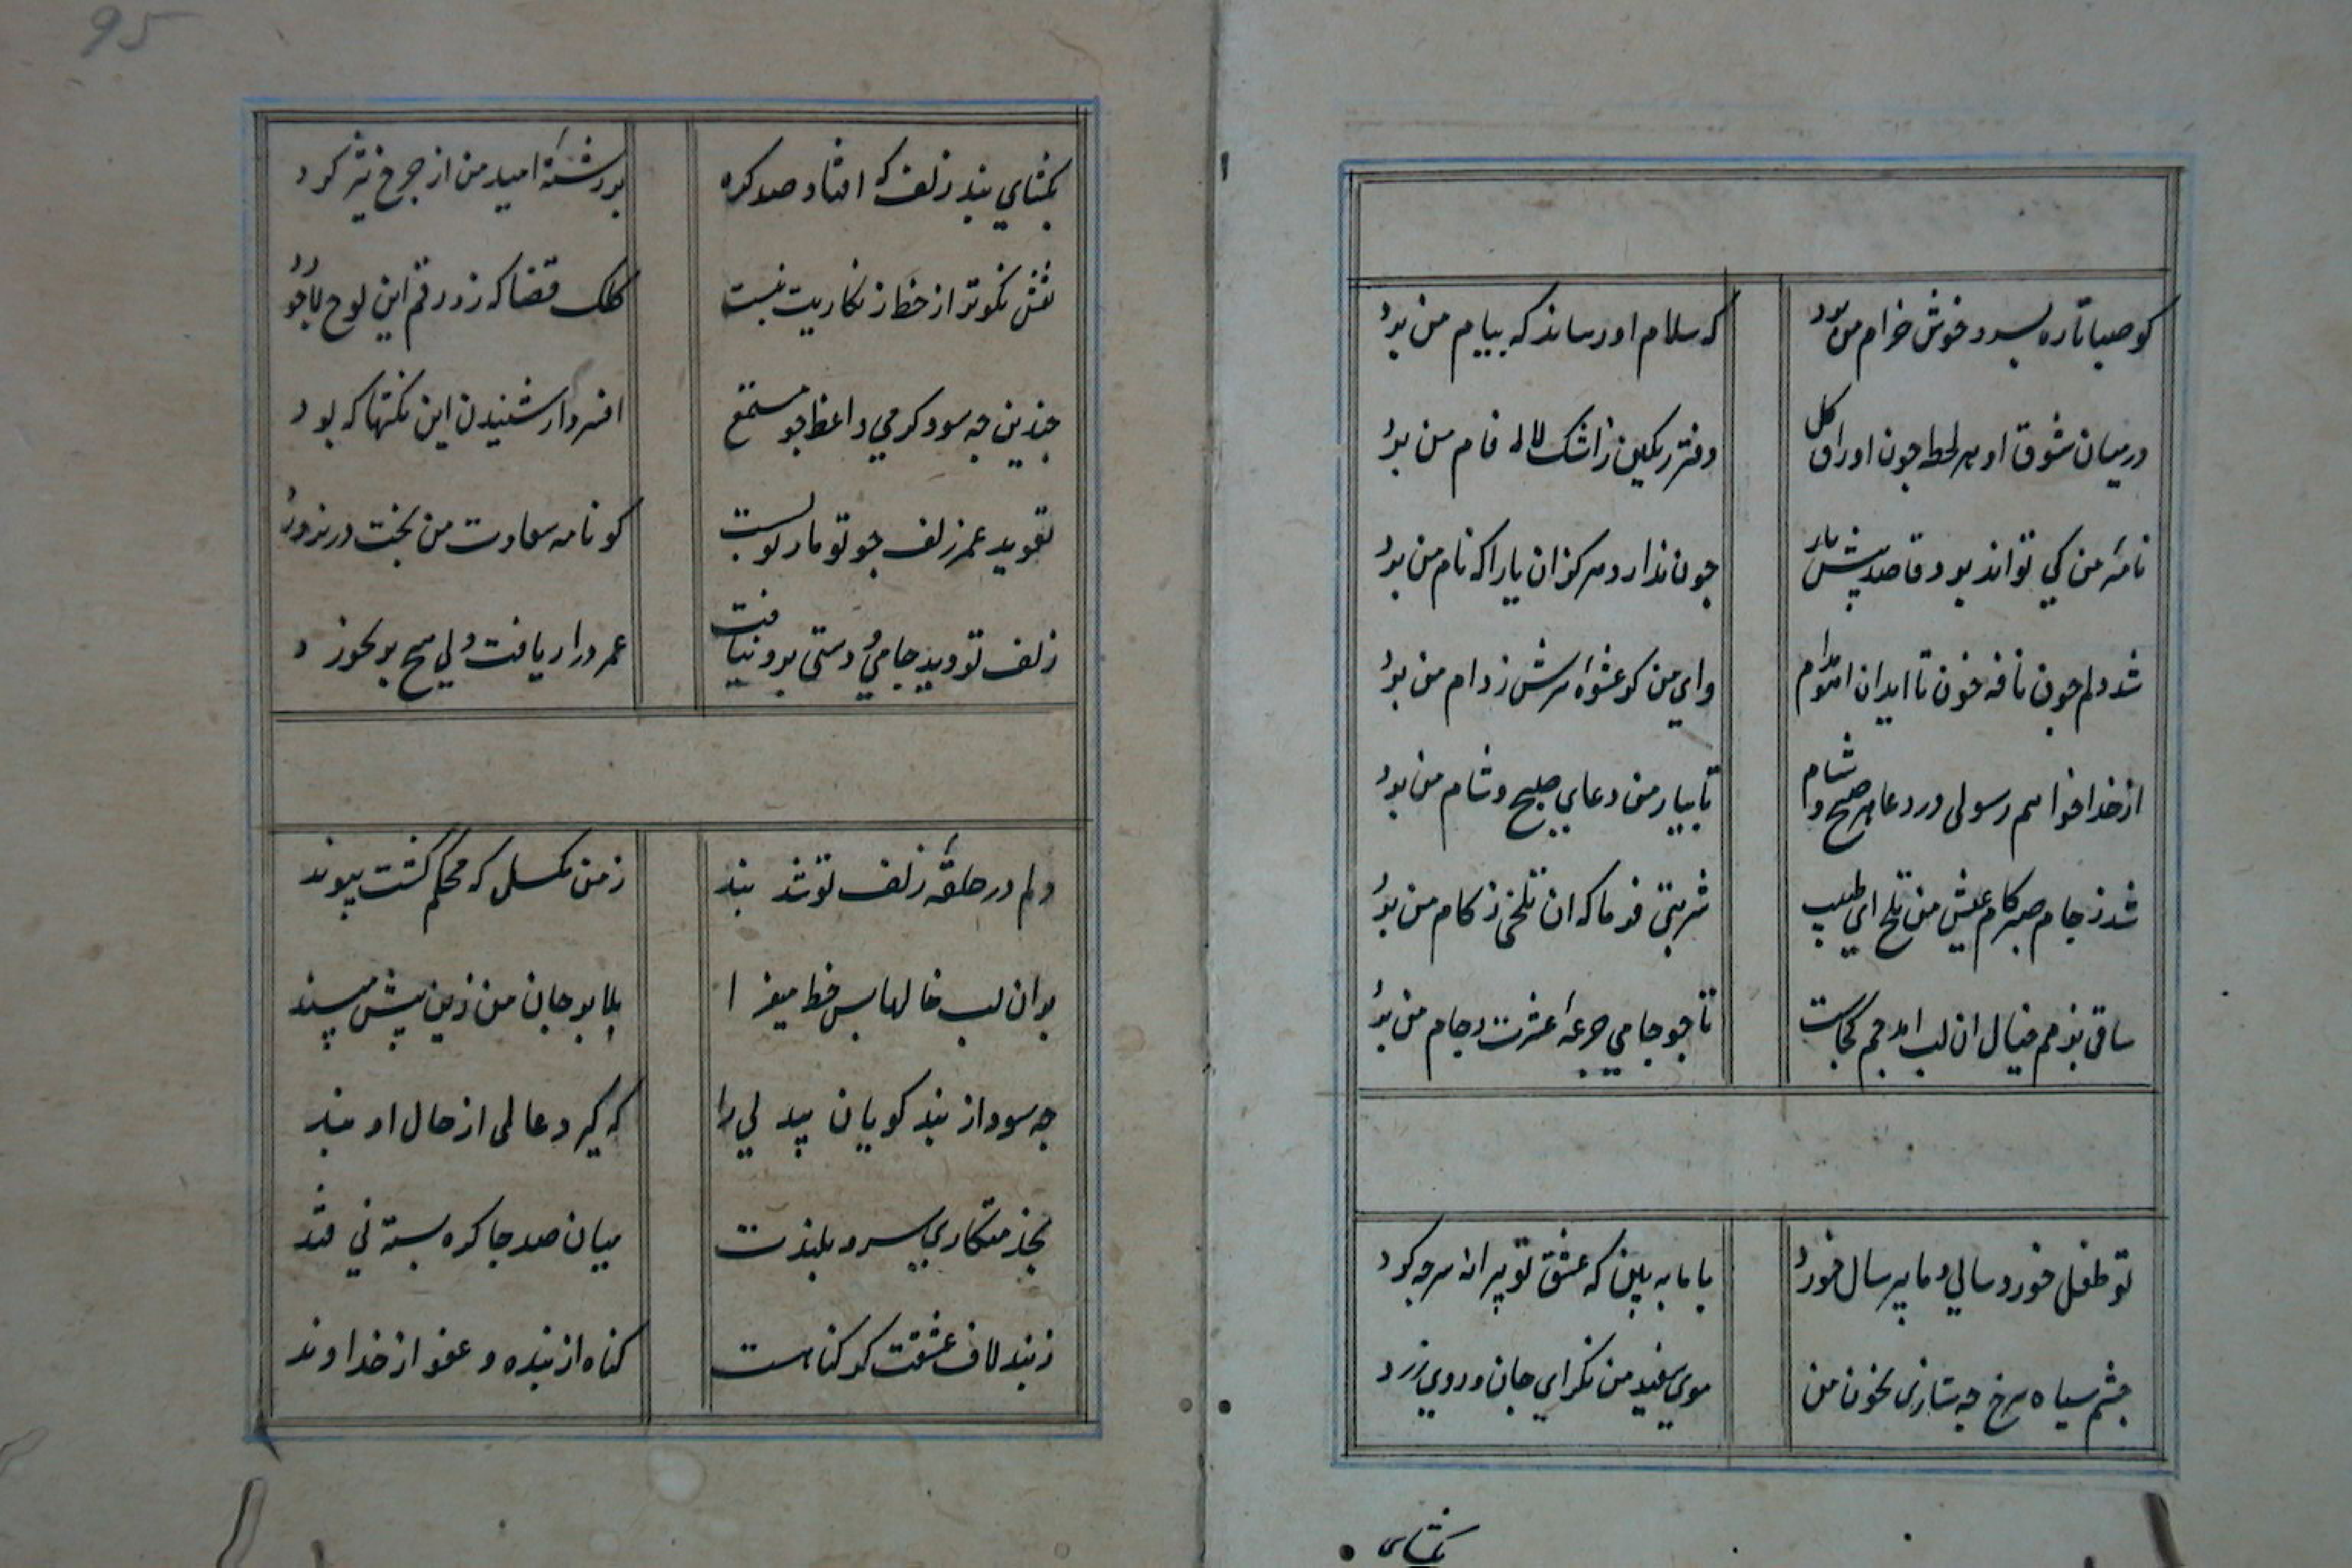 کو صبا تا ره بسرو خوش خرام من برد
که سلام او رساند که پیام من برد
در میان شوق او هر لحظه جون اوراق کل
دفتر رنکین ز اشک لاله فام من برد
نامهٔ من کی تواند برد قاصد پیش یار
جون ندارد هرکز ان یارا که نام من برد
شد دلم جون نافه خون تا اید ان اهو بدام
وای من کر عشوهٔ سرش ز دام من برد
از خدا خواهم رسولی در دعا هر صبح و شام
تا بیار من دعای صبح و شام من برد
شد ز جام صبر کام عیش من تلخ ای طبیب
شربتی فرما که ان تلخی ز کام من برد
ساقی بزمم خیال ان لب امد جم کجاست
تا جو جامی جرعهٔ عشرت ز جام من برد
تو طفل خورد سالی و ما پیر سال خورد
با ما به بین که عشق تو پیرانه سر جه کرد
جشم سیاه سرخ جه سازی بخون من
موی سفید من نکر ای جان و روی زرد
بکشای
95
بکشای بند زلف که افتاد صد کره
بر رشتهٔ امید من از جرخ تیز کرد
نقش نکوتر از خط زنکاریت نبست
کلک قضا که زد رقم این لوح لاجورد
جندین جه سود کرمی واعظ جو مستمع
افسرد از شنیدن این نکتها که بود
تعوید عمر زلف جو تومار تو بست
کو نامه سعادت من بخت در نورد
زلف تو دید جامی و دستی برو نیافت
عمر دراز یافت ولی هیج بر نخورد
دلم در حلقهٔ زلف تو شد بند
ز من مکسل که محکم کشت پیوند
بر ان لب خالها بس خط میفزا
بلا بر جان من زین پیش مپسند
جه سود از پند کویان بیدلی را
که کیرد عالمی از حال او پند
بخدمتکاری سرو بلندت
میان صد جا کره بسته نی قند
زند لاف عشقت کر کناهست
کناه از بنده و عفو از خداوند